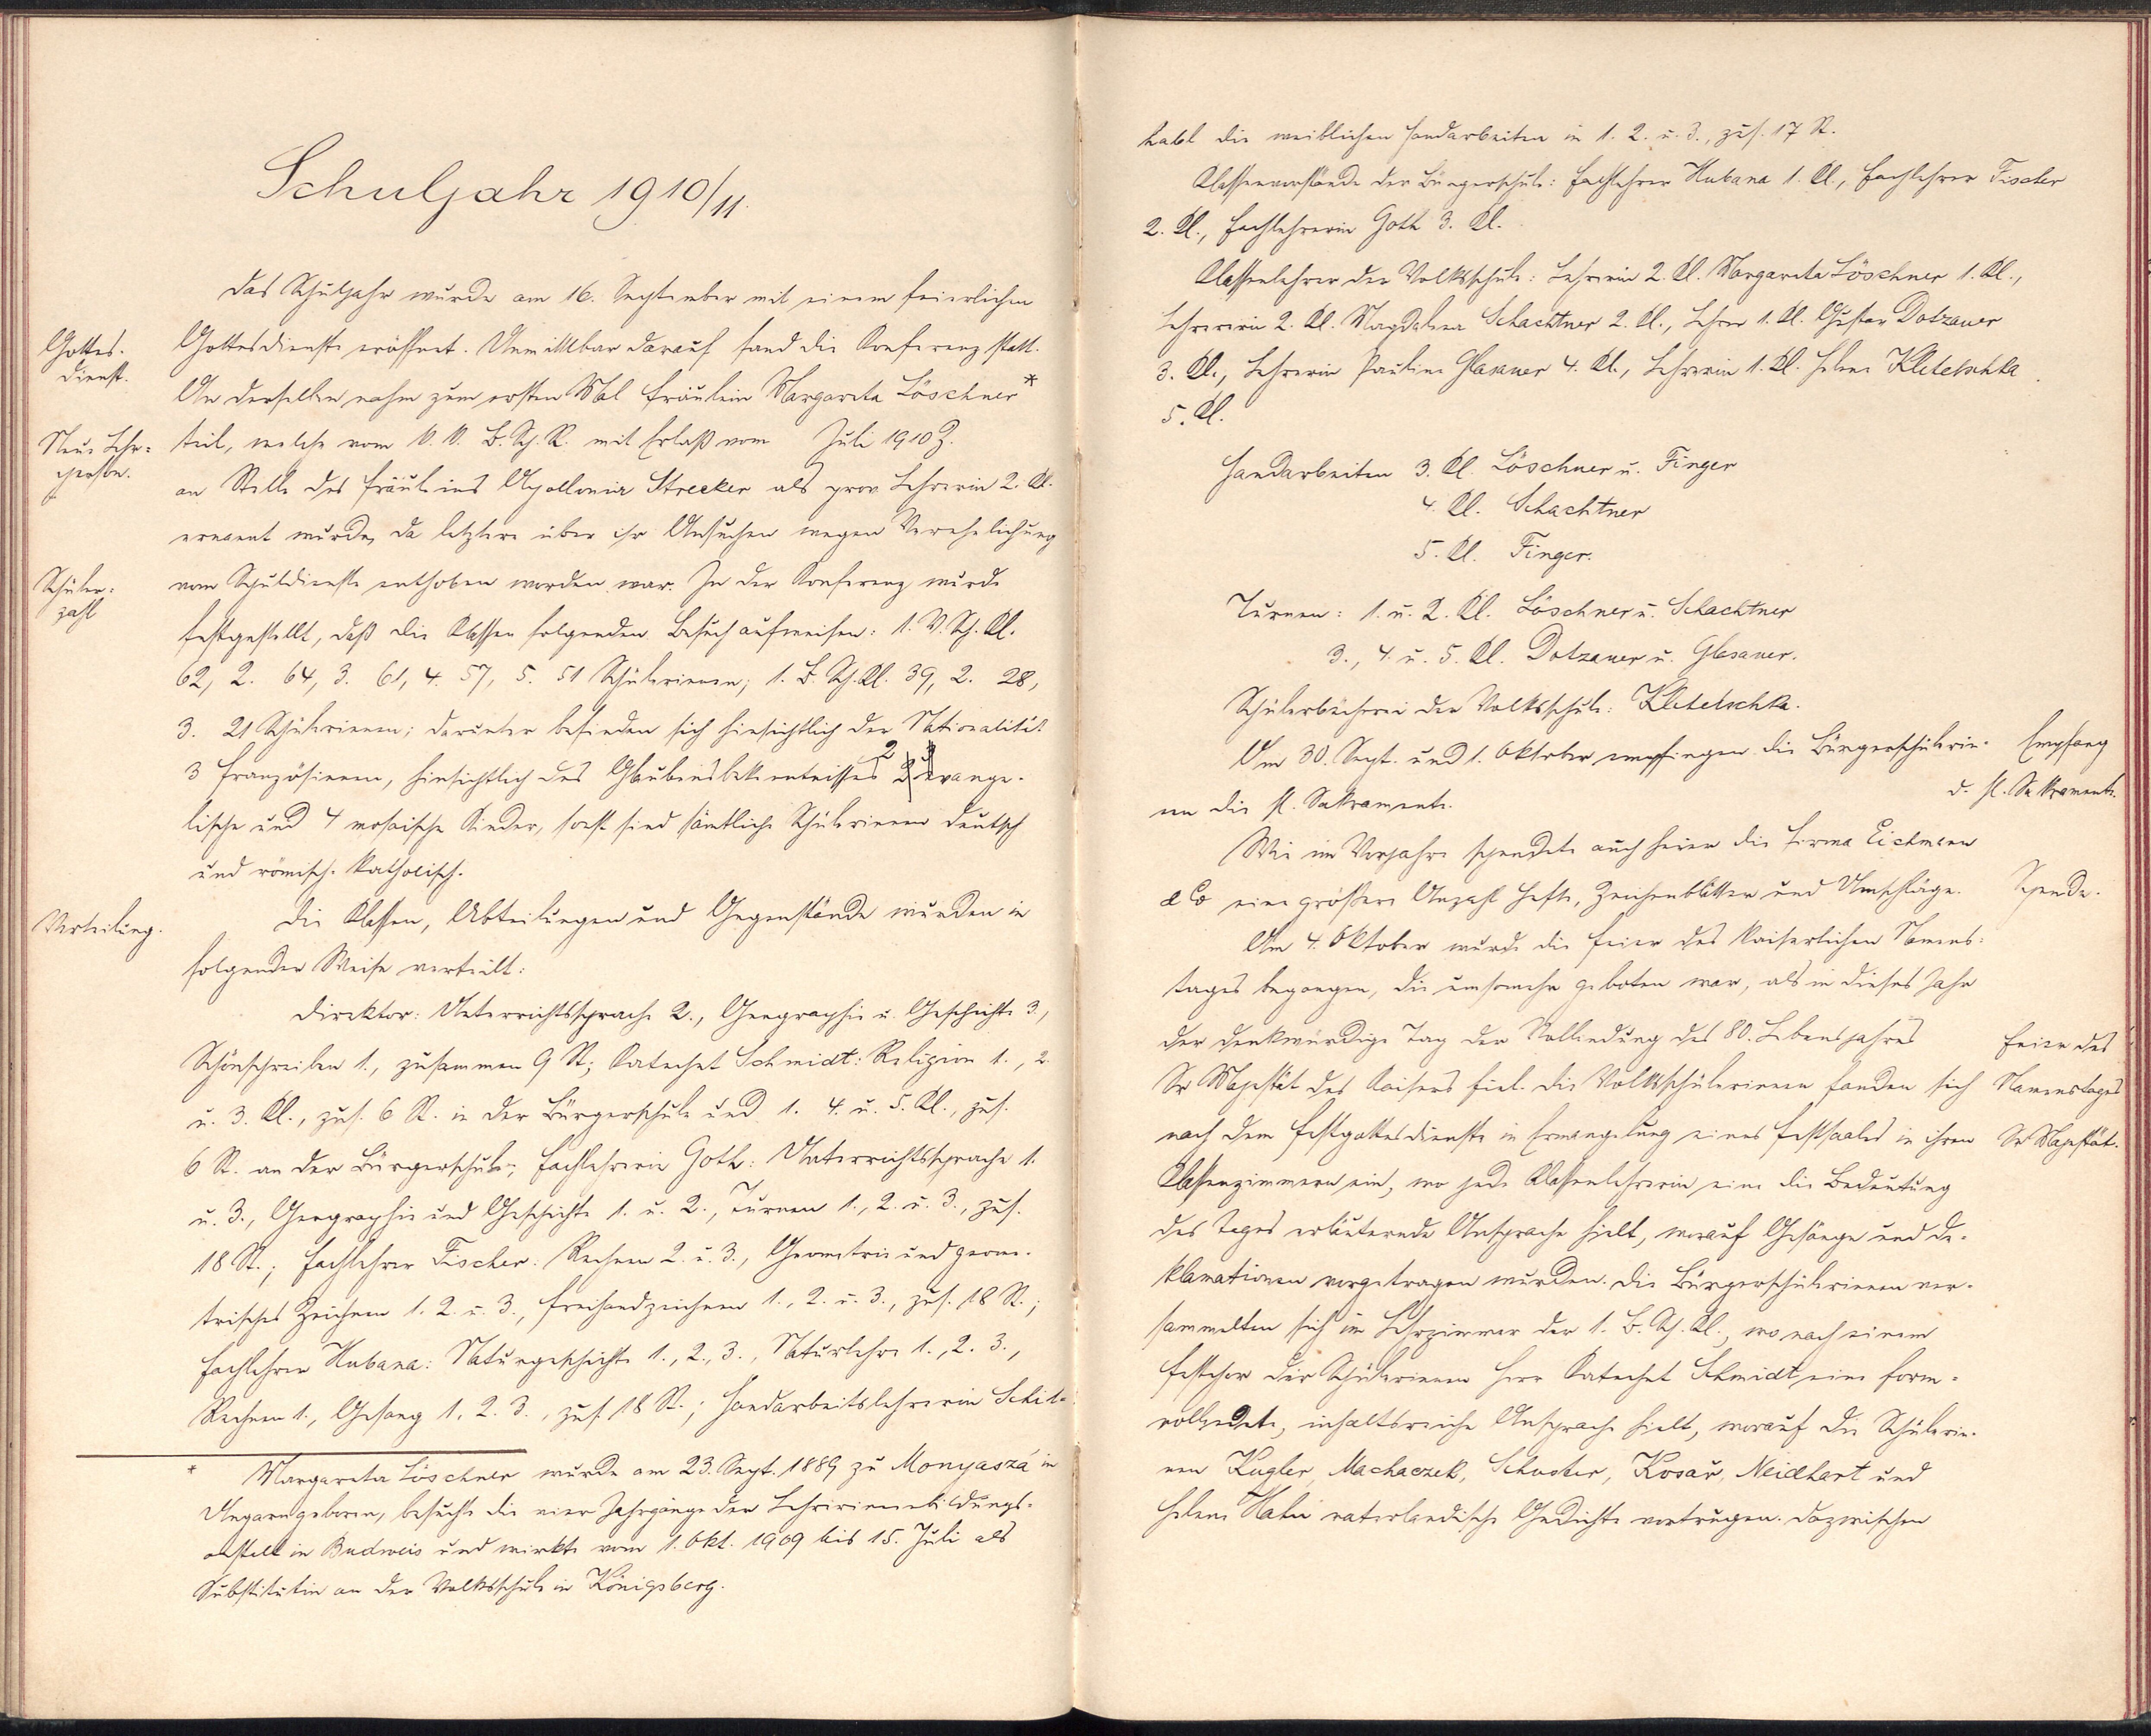 Schuljahr 1910/11.
Das Schuljahr wurde am 16. September mit einem feierlichen
Gottes-
dienst.
Gottesdienste eröffnet. Unmittelbar darauf fand die Konferenz statt.
An derselben nahm zum ersten Mal Fräulein Margareta Löschner*
Neue Lehr-
person.
teil, welche vom k. k. B. Sch. R. mit Erlaß vom Juli 1910 Z.
an Stelle des Fräuleins Apollonia Strecker als prov Lehrerin 2. Kl.
ernannt wurde, da letztere über ihr Ansuchen wegen Verehelichung
Schüler-
zahl
vom Schuldienste enthoben worden war. In der Konferenz wurde
festgestellt, daß die Klassen folgenden Besuch aufweisen: 1. V. Sch. Kl.
62, 2. 64, 3. 61, 4. 57, 5. 51 Schülerinnen; 1. B. Sch. Kl. 39, 2. 28,
3. 21 Schülerinnen; darunter befinden sich hinsichtlich der Nationalität
3 Französinnen, hinsichtlich des Glaubensbekenntnisses 2 evange-
lische und 4 mosaische Kinder, sonst sind sämtliche Schülerinnen deutsch
und römisch-katholisch.
Verteilung.
Die Klassen, Abteilungen und Gegenstände wurden in
folgender Weise verteilt:
Direktor: Unterrichtssprache 2., Geographie u. Geschichte 3.,
Schönschreiben 1., zusammen 9 St.; Katechet Schmidt: Religion 1., 2.
u. 3. Kl., zus. 6 St. in der Bürgerschule und 1. 4. u. 5. Kl., zus.
6 St. an der Bürgerschule; Fachlehrerin Goth: Unterrichtssprache 1.
u. 3., Geographie und Geschichte 1. u. 2., Turnen 1., 2. u. 3., zus.
18 St.; Fachlehrer Fischer: Rechnen 2. u. 3., Geometrie und geome-
trisches Zeichnen 1. 2. u. 3., Freihandzeichnen 1., 2. u. 3., zus. 18 St.;
Fachlehrer Hubana: Naturgeschichte 1., 2., 3., Naturlehre 1., 2. 3.,
Rechnen 1., Gesang 1. 2. 3., zus. 18 St.; Handarbeitslehrerin Schit-
* Margareta Löschner wurde am 23. Sept. 1889 zu Monyászá in
Ungarn geboren, besuchte die vier Jahrgänge der Lehrerinnenbildungs-
anstalt in Budweis und wirkte vom 1. Okt. 1909 bis 15. Juli als
Substitutin an der Volksschule in Königsberg.
habl die weiblichen Handarbeiten in 1. 2. u. 3., zus. 17 St.
Klassenvorstände der Bürgerschule: Fachlehrer Hubana 1. Kl., Fachlehrer Fischer
2. Kl., Fachlehrerin Goth 3. Kl.
Klassenlehrer der Volksschule: Lehrerin 2. Kl. Margareta Löschner 1. Kl.,
Lehrerin 2. Kl. Magdalena Schachtner 2. Kl., Lehrer 1. Kl. Gustav Dotzauer
3. Kl., Lehrerin Pauline Glasauer 4. Kl., Lehrerin 1. Kl. Helene Kletetschka
5. Kl.
Handarbeiten 3. Kl. Löschner u. Finger
4. Kl. Schachtner
5. Kl. Finger.
Turnen: 1. u. 2. Kl. Löschner u. Schachtner
3., 4. u. 5. Kl. Dotzauer u. Glasauer.
Schülerbücherei der Volksschule: Kletetschka.
Am 30. Sept. und 1. Oktober empfingen die Bürgerschülerin-
Empfang
d. hl. Sakramente.
nen die hl. Sakramente.
Wie im Vorjahre spendete auch heuer die Firma Eichmann
& Co eine größere Anzahl Hefte, Zeichenblätter und Umschläge.
Spende.
Am 4. Oktober wurde die Feier des kaiserlichen Namens-
tages begangen, die umsomehr geboten war, als in dieses Jahr
der denkwürdige Tag der Vollendung des 80. Lebensjahres
Feier des
Sr Majestät des Kaisers fiel. Die Volksschülerinnen fanden sich
Namenstages
nach dem Festgottesdienste in Ermangelung eines Festsaales in ihren
Sr Majestät.
Klassenzimmern ein, wo jede Klassenlehrerin eine die Bedeutung
des Tages erläuternde Ansprache hielt, worauf Gesänge und De-
klamationen vorgetragen wurden. Die Bürgerschülerinnen ver-
sammelten sich im Lehrzimmer der 1. B. Sch. Kl., wo nach einem
Festchor der Schülerinnen Herr Katechet Schmidt eine form-
vollendete, inhaltsreiche Ansprache hielt, worauf die Schülerin-
nen Kugler, Machaczek, Schuster, Kosař, Neidhart und
Helene Hahn vaterländische Gedichte vortrugen. Dazwischen